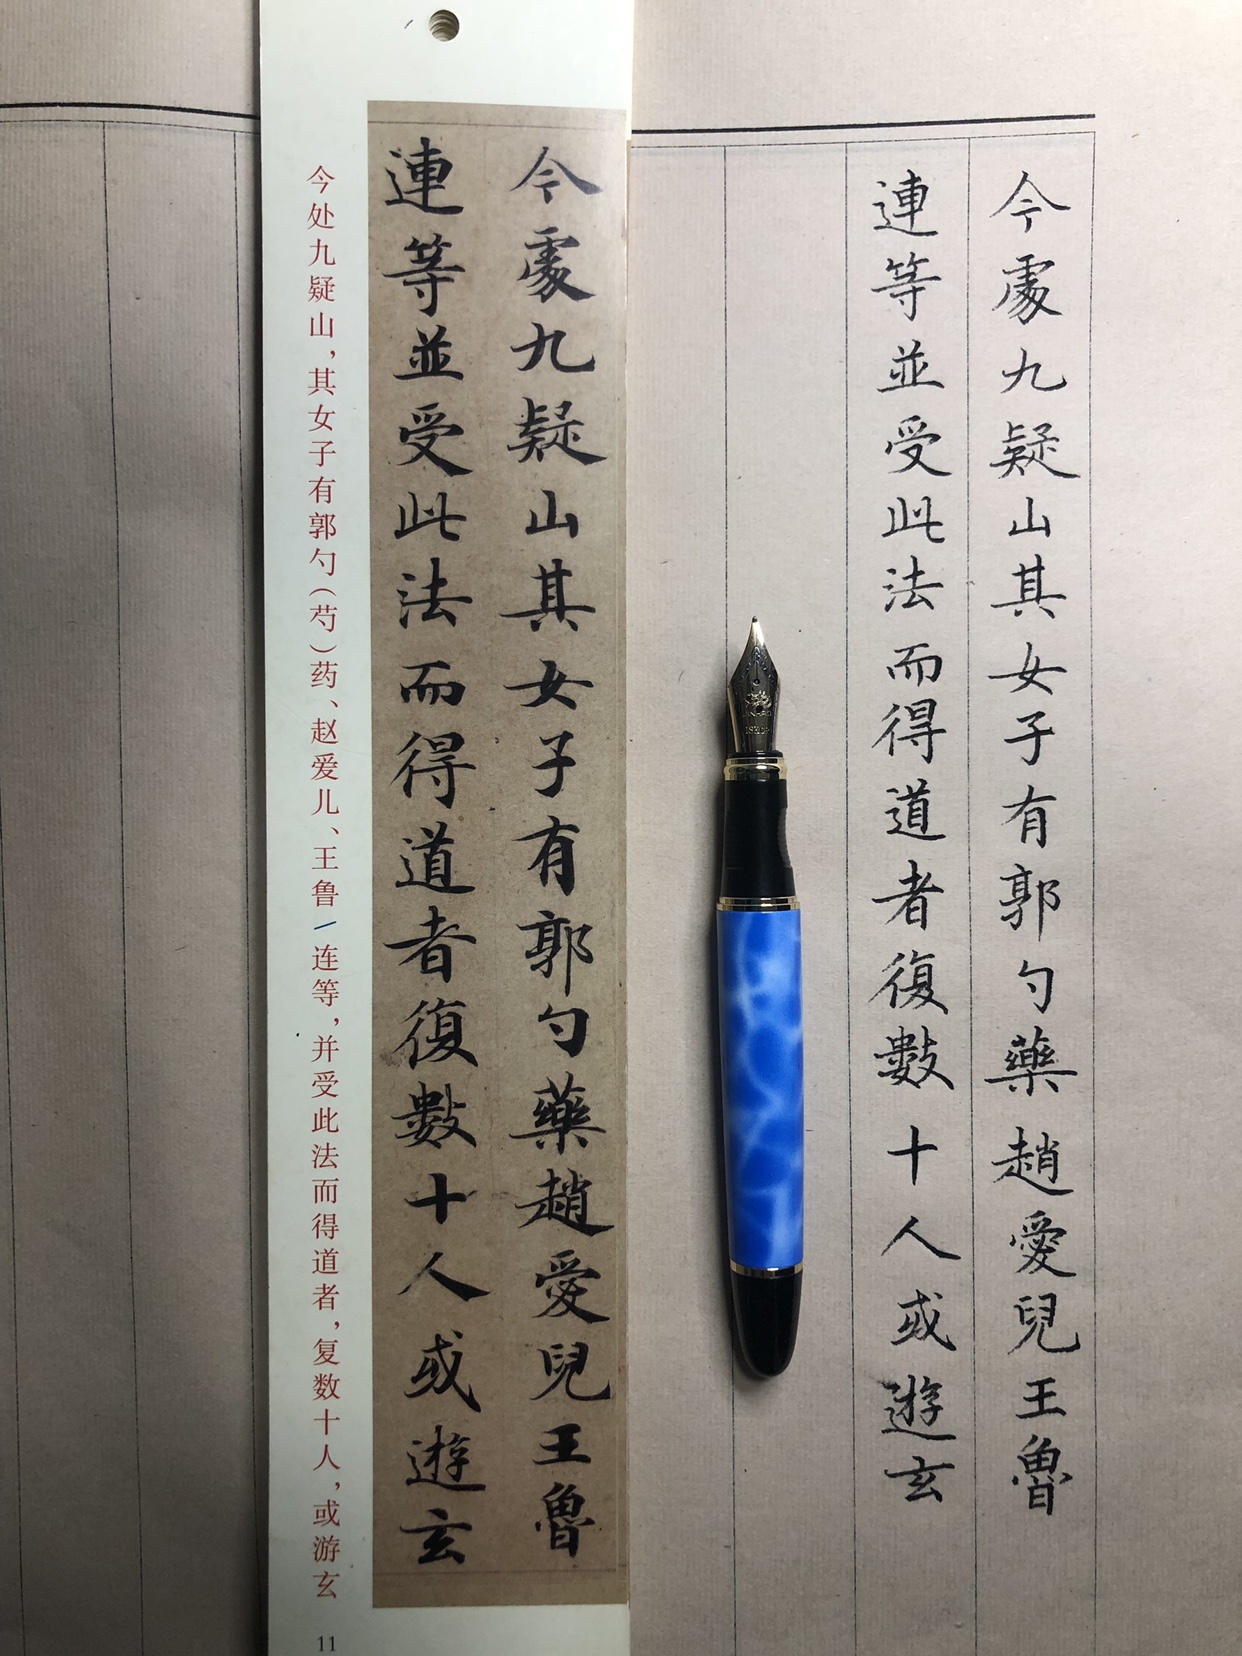 今處九疑山其女子有郭勺藥趙愛兒王魯
連等並受此法而得道者復數十人或遊玄
今處九疑山其女子有郭勺藥趙愛兒王魯
連等並受此法而得道者復數十人或遊玄
今处九疑山，其女子有郭勺（芍）药、赵爱儿、王鲁/连等，并受此法而得道者，复数十人，或游玄
11